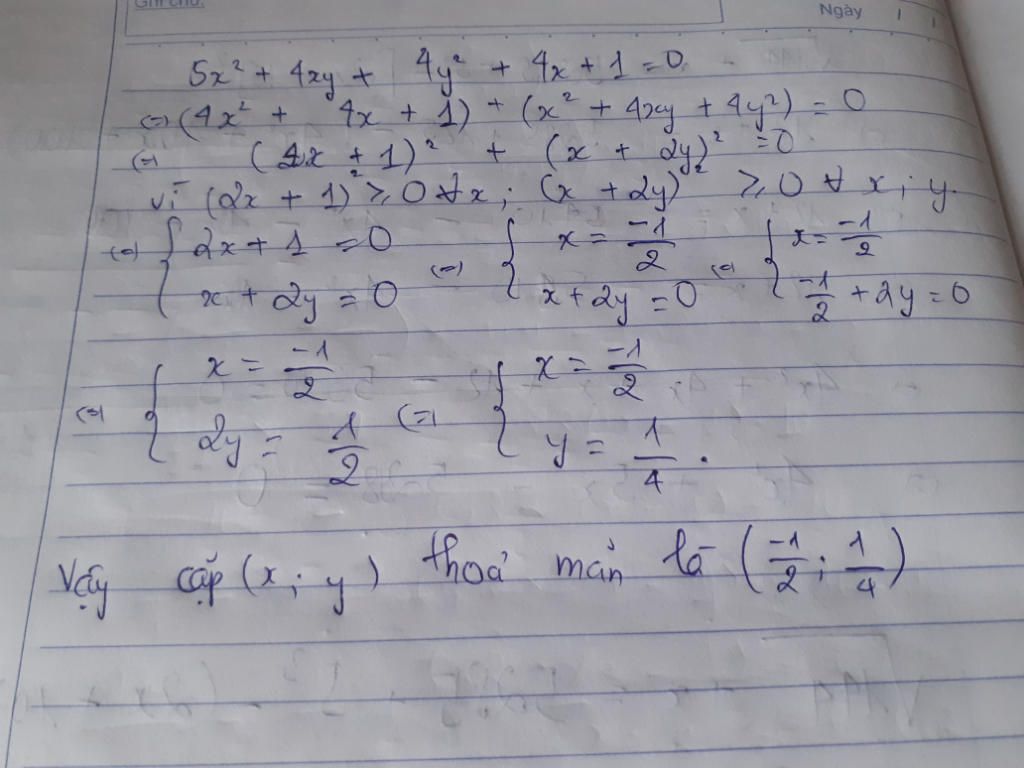 Ghi chú:
Ngày
5x² + 4xy + 4y² + 4x + 1 = 0
(=) (4x² + 4x + 1) + (x² + 4xy + 4y²) = 0
(=) (2x + 1)² + (x + 2y)² = 0
vì (2x + 1)² ≥ 0 ∀ x ; (x + 2y)² ≥ 0 ∀ x ; y.
(=) { 2x + 1 = 0 ; x + 2y = 0 (=) { x = -1/2 ; x + 2y = 0 (=) { x = -1/2 ; -1/2 + 2y = 0
(=) { x = -1/2 ; 2y = 1/2 (=) { x = -1/2 ; y = 1/4 .
Vậy cặp (x ; y) thoả mản là (-1/2 ; 1/4)